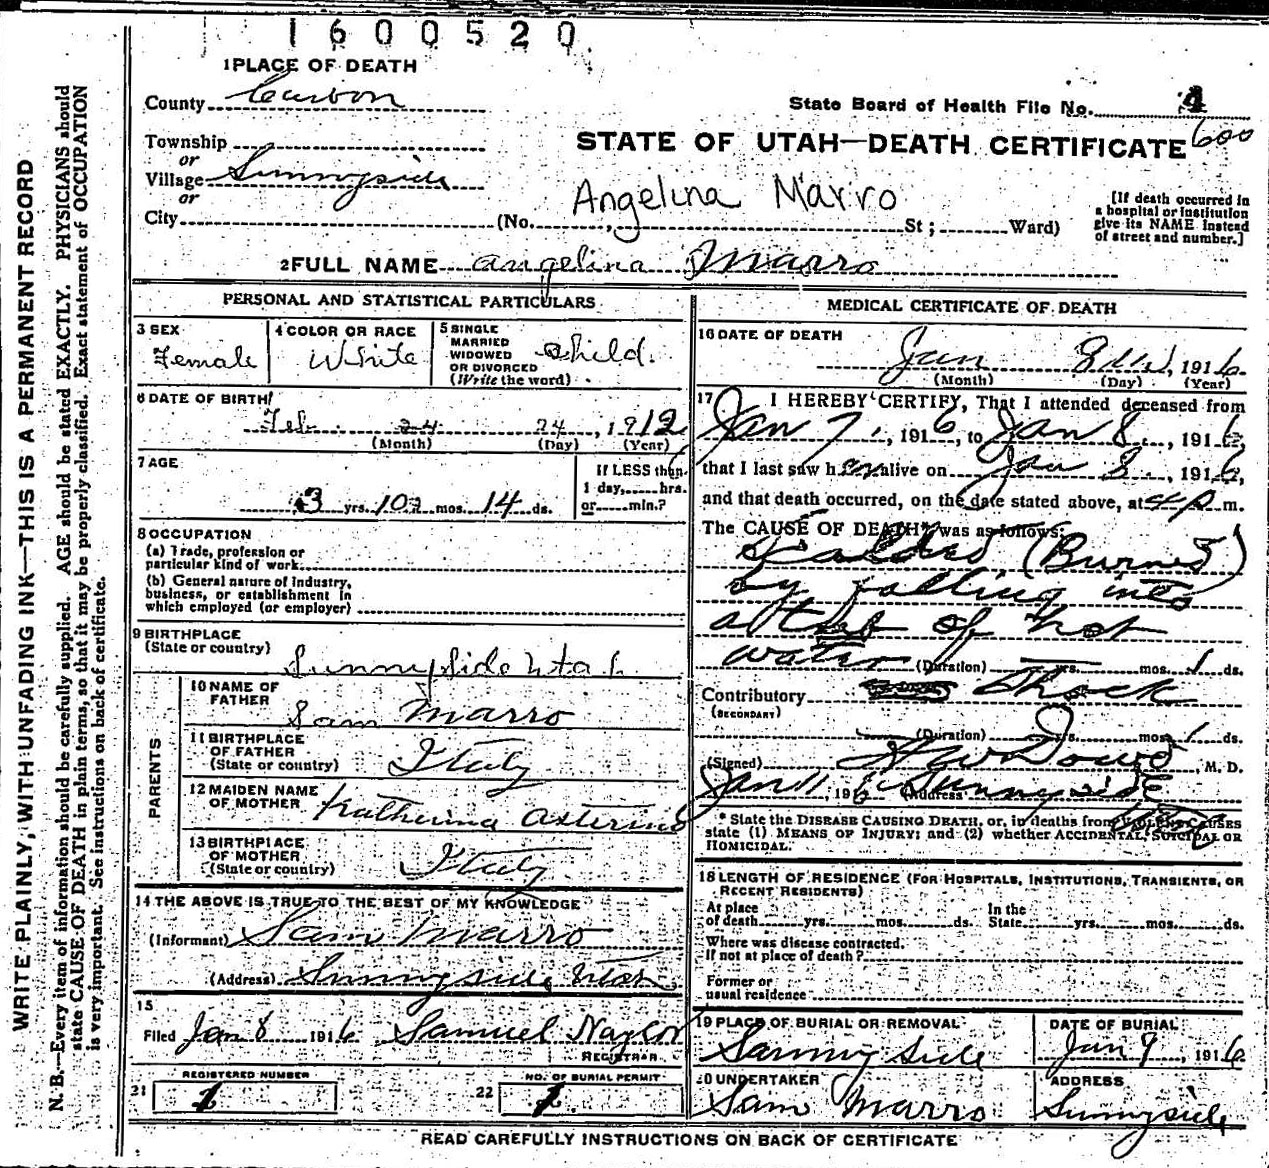 1600520
1 PLACE OF DEATH
County Carbon
State Board of Health File No. 4
600
Township
or
Village Sunnyside
or
City
STATE OF UTAH—DEATH CERTIFICATE
Angelina Marro
(No. , St ; Ward)
[If death occurred in
a hospital or institution
give its NAME instead
of street and number.]
2 FULL NAME Angelina Marro
PERSONAL AND STATISTICAL PARTICULARS
3 SEX
Female
4 COLOR OR RACE
White
5 SINGLE
MARRIED
WIDOWED
OR DIVORCED
(Write the word)
Child.
6 DATE OF BIRTH
Feb. 24 24, 1912
(Month) (Day) (Year)
7 AGE
3 yrs. 10 mos. 14 ds.
If LESS than
1 day, hrs.
or min.?
8 OCCUPATION
(a) Trade, profession or
particular kind of work
(b) General nature of Industry,
business, or establishment in
which employed (or employer)
9 BIRTHPLACE
(State or country)
Sunnyside Utah
PARENTS
10 NAME OF
FATHER
Sam Marro
11 BIRTHPLACE
OF FATHER
(State or country)
Italy
12 MAIDEN NAME
OF MOTHER
Katherina Asterino
13 BIRTHPLACE
OF MOTHER
(State or country)
Italy
14 THE ABOVE IS TRUE TO THE BEST OF MY KNOWLEDGE
(Informant) Sam Marro
(Address) Sunnyside Utah
15
Filed Jan 8 1916 Samuel Naylor
REGISTRAR
REGISTERED NUMBER
21 1
NO. OF BURIAL PERMIT
22 1
MEDICAL CERTIFICATE OF DEATH
16 DATE OF DEATH
Jan 8, 1916
(Month) (Day) (Year)
17 I HEREBY CERTIFY, That I attended deceased from
Jan 7, 1916, to Jan 8, 1916,
that I last saw her alive on Jan 8, 1916,
and that death occurred, on the date stated above, at 4 p m.
The CAUSE OF DEATH* was as follows:
Scalded (Burned)
by falling into
a tub of hot
water (Duration) yrs. mos. 1 ds.
Contributory Shock
(SECONDARY)
(Duration) yrs. mos. 1 ds.
(Signed) Dowd, M. D.
Jan 11, 1916 (Address) Sunnyside
* State the DISEASE CAUSING DEATH, or, in deaths from VIOLENT CAUSES
state (1) MEANS OF INJURY; and (2) whether ACCIDENTAL, SUICIDAL OR
HOMICIDAL.
18 LENGTH OF RESIDENCE (FOR HOSPITALS, INSTITUTIONS, TRANSIENTS, OR
RECENT RESIDENTS)
At place
of death yrs. mos. ds.
In the
State yrs. mos. ds.
Where was disease contracted.
If not at place of death?
Former or
usual residence
19 PLACE OF BURIAL OR REMOVAL
Sunnyside
DATE OF BURIAL
Jan 9, 1916
20 UNDERTAKER
Sam Marro
ADDRESS
Sunnyside
READ CAREFULLY INSTRUCTIONS ON BACK OF CERTIFICATE
WRITE PLAINLY, WITH UNFADING INK—THIS IS A PERMANENT RECORD
N. B.—Every item of information should be carefully supplied. AGE should be stated EXACTLY. PHYSICIANS should
state CAUSE OF DEATH in plain terms, so that it may be properly classified. Exact statement of OCCUPATION
is very important. See instructions on back of certificate.